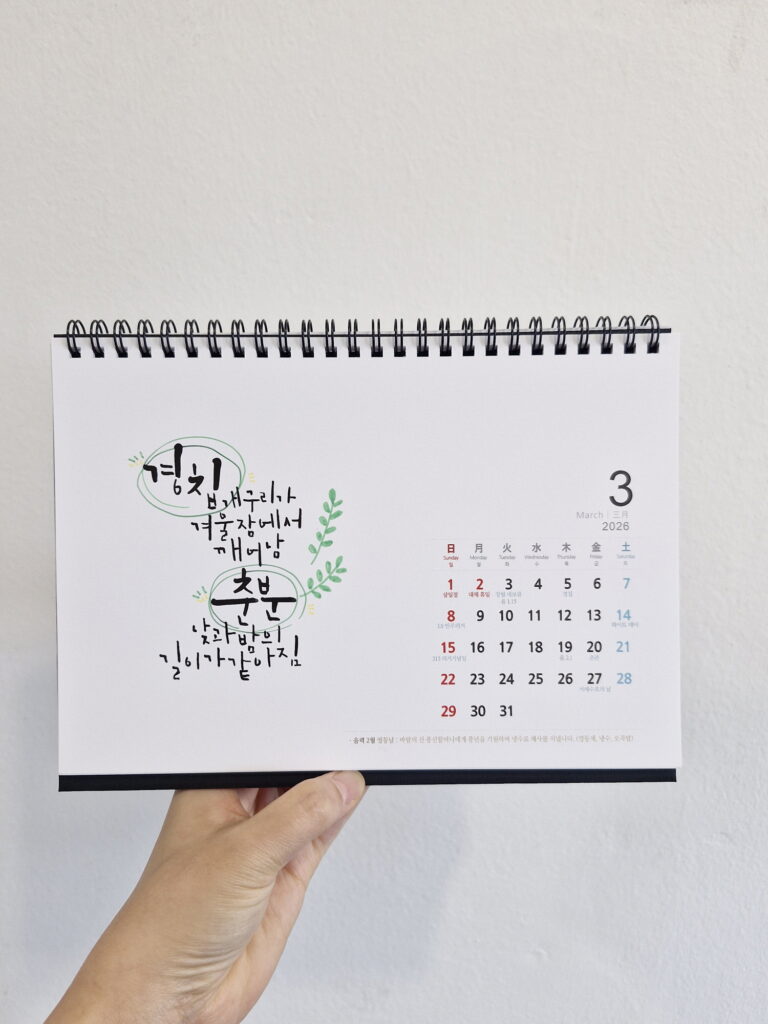 경칩
개구리가
겨울잠에서
깨어남
춘분
낮과 밤의
길이가 같아짐
3
March | 三月
2026
日 月 火 水 木 金 土
Sunday Monday Tuesday Wednesday Thursday Friday Saturday
일 월 화 수 목 금 토
1 2 3 4 5 6 7
삼일절 대체 휴일 정월 대보름 경칩
음 1.15
8 9 10 11 12 13 14
화이트 데이
15 16 17 18 19 20 21
음 2.1 춘분
22 23 24 25 26 27 28
서해수호의 날
29 30 31
· 음력 2월